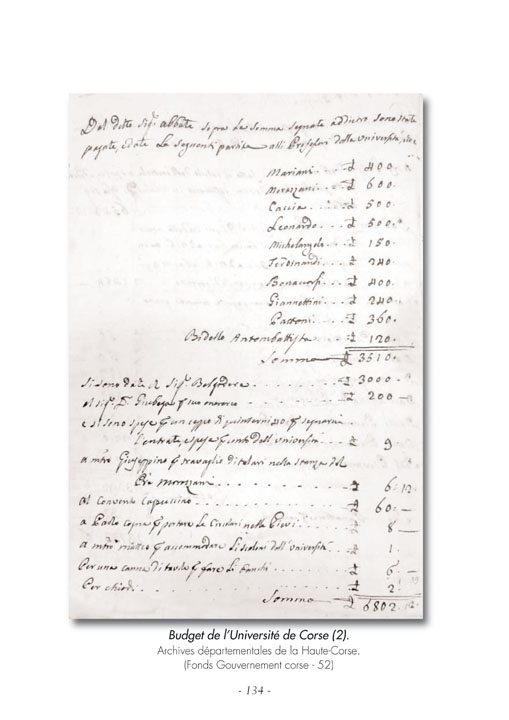 Dal detto Sig.r abbate sopra la somma segnata addietro sono state
pagate, e date le seguenti partite alli Professori della Università, cioè
Mariani . . . £ 400.
Morazzani . . £ 600.
Caccia . . . £ 500.
Leonardo . . . £ 500.
Michelangelo . . £ 150.
Ferdinandi . . £ 240.
Bonacorsi . . £ 400.
Giannettini . . £ 240.
Pattoni . . . £ 360.
Bidello Antombattista £ 120.
Somma £ 3510.
Si sono date al Sig.r Belfodere . . . £ 3000.
al Sig.r D. Giubega suo onorario . . . £ 200
e si sono spese per un ceppo di quinterni per segnarvi
l'entrate, e spese conto dell'università . . £ 9
a mro Giuseppino travaglio di telari nella stanza del
Pre Morazzani . . . £ 6. 12
al Convento Capuccino . . . £ 60.
a Paolo per portare le Circolari nelle Pievi . . . £ 8
a mro Matteo per accommodare li scolari dell'Università . . £ 1.
Per una canna di tavole per fare li banchi . . . £ 6
Per chiodi . . . £ 2
Somma £ 6802. 12
Budget de l'Université de Corse (2).
Archives départementales de la Haute-Corse.
(Fonds Gouvernement corse - 52)
- 134 -